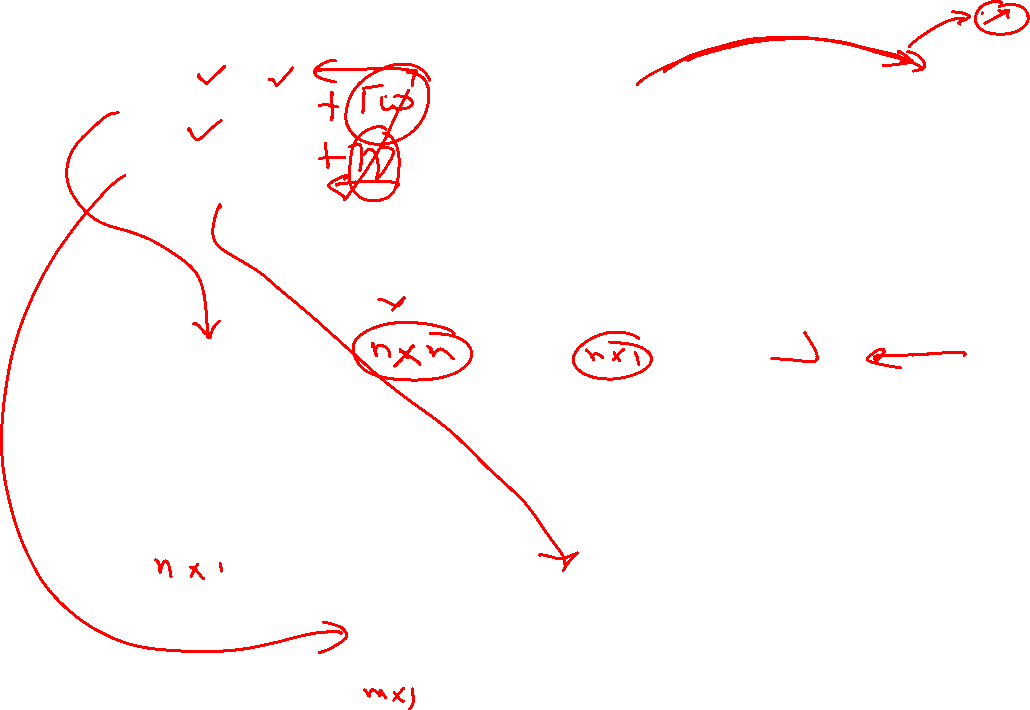 + Γω
+ η
n × n
n × 1
n × 1
m × 1